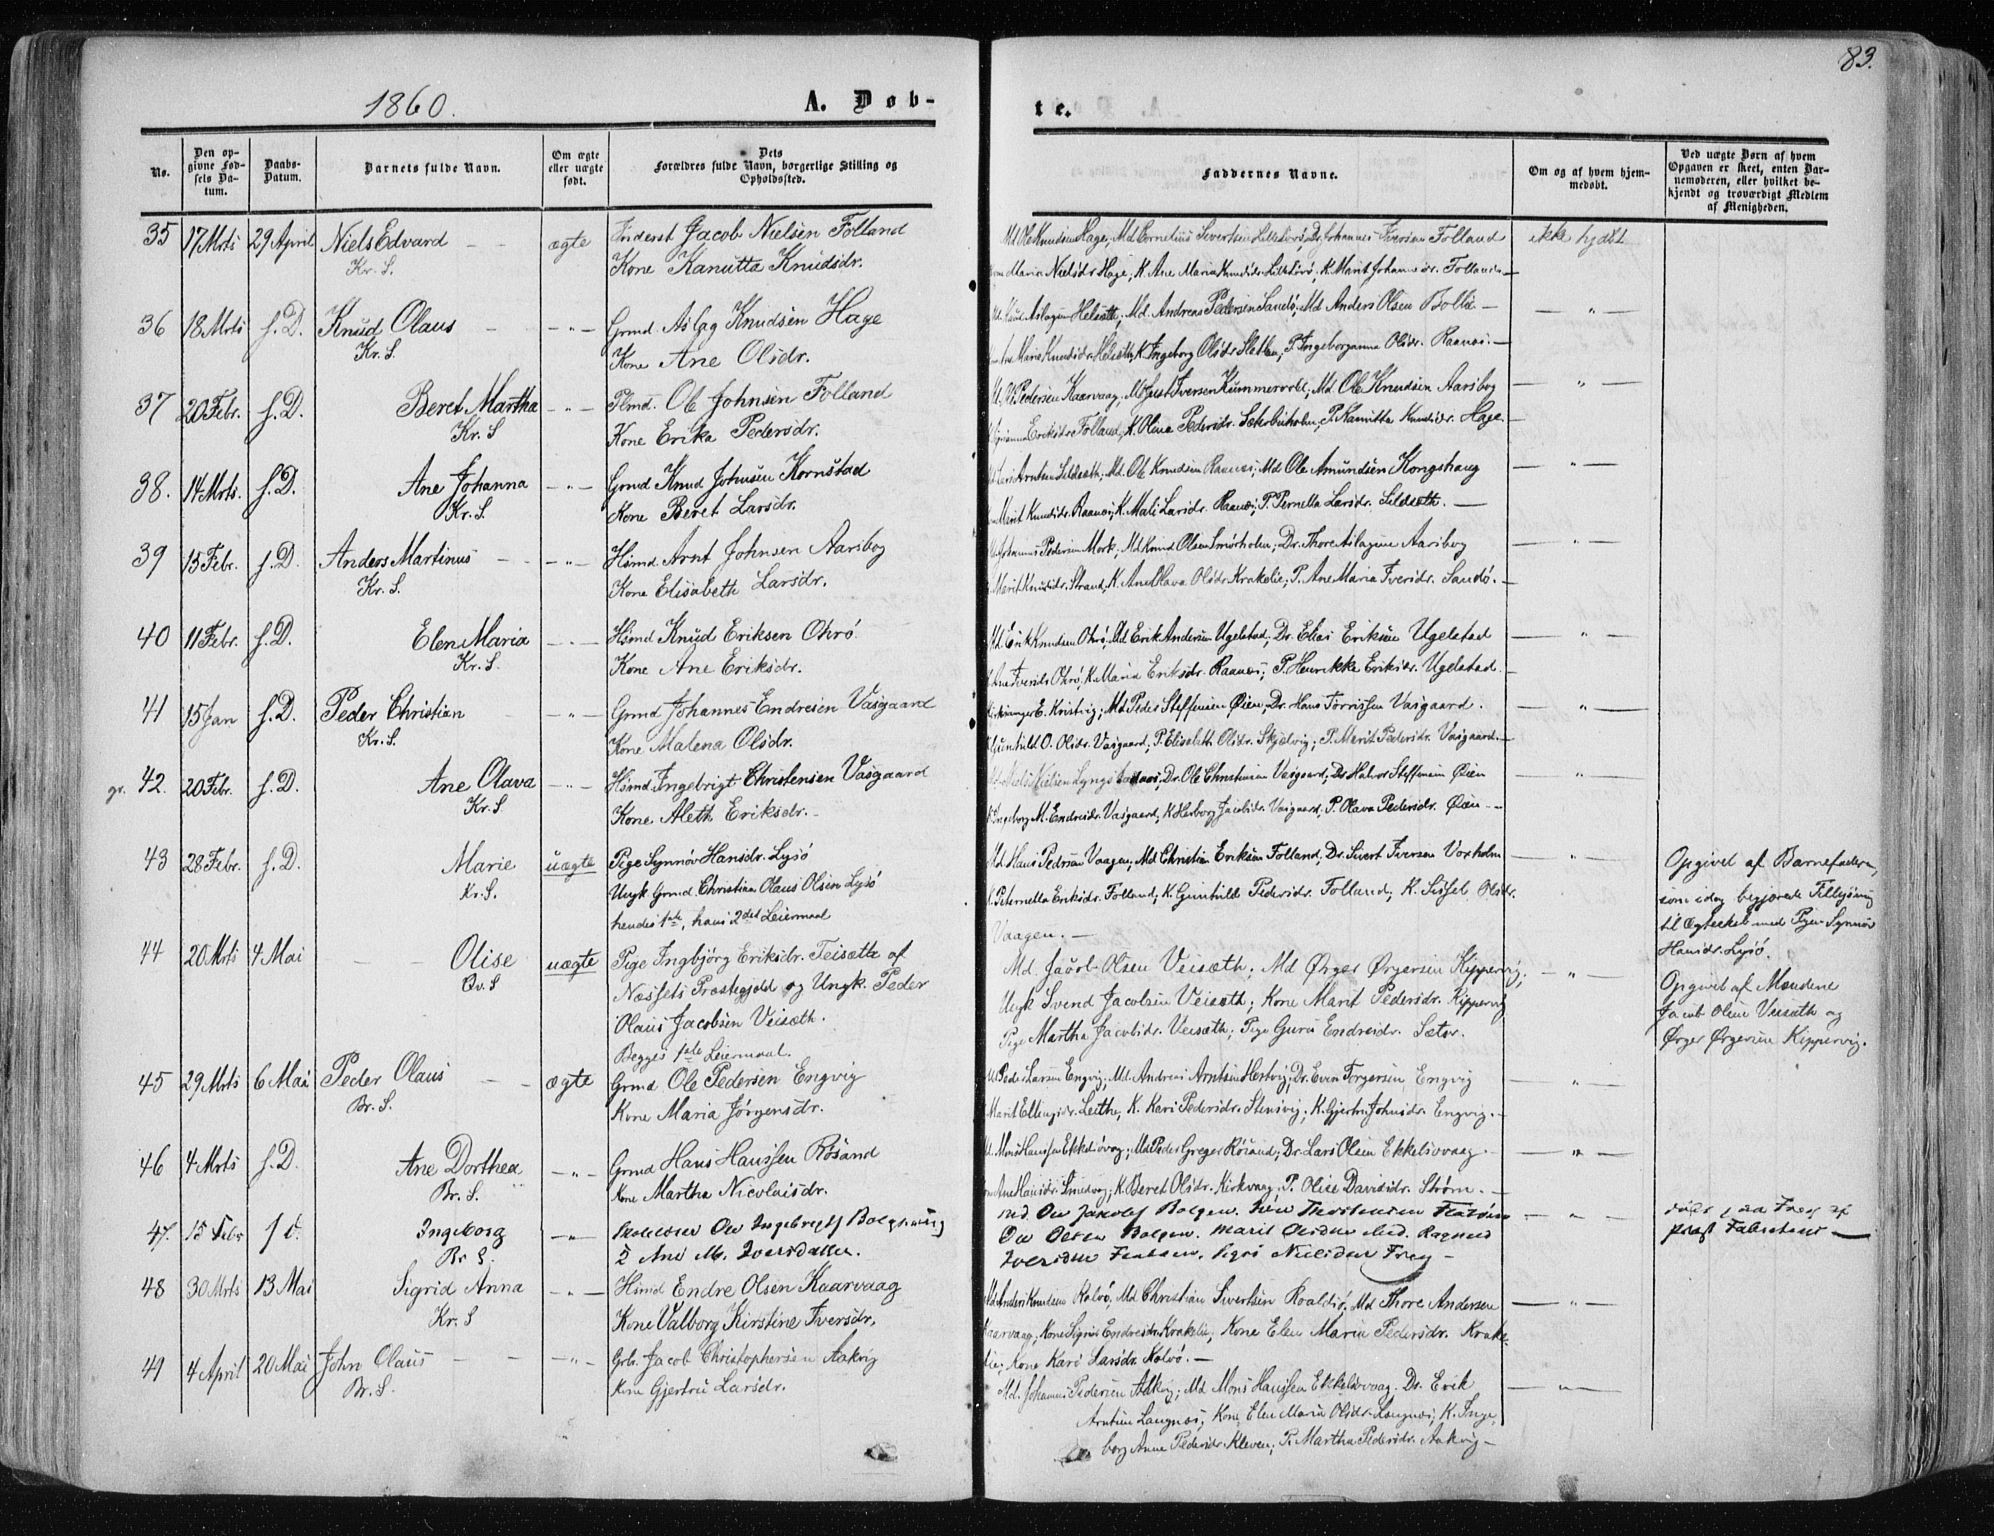 83.
1860.
A. Døb-
te.
No.
Den opgivne Fødsels Datum.
Daabs-Datum.
Barnets fulde Navn.
Om ægte eller uægte født.
Dets Forældres fulde Navn, borgerlige Stilling og Opholdssted.
Faddernes Navne.
Om og af hvem hjemmedøbt.
Ved uægte Børn af hvem Opgaven er skeet, enten Barnemoderen, eller hvilket bekjendt og troværdigt Medlem af Menigheden.
35 17 Mrts 29 April Niels Edvard — ægte Inderst Jacob Nielsen Folland
Kr. S. Kone Kanutta Knudsdr.
Md Ole Knudsen Hage; Md Cornelius Sivertsen Lilleforø; Dr. Johannes Iversen Folland ikke hjdbt
Maria Nielsdr Hage, K. Ane Maria Knudsdr. Lilleforø, K. Marit Johansdr. Folland
36 18 Mrts s. D. Knud Olaus — — " — Grmd. Aslag Knudsen Hage
Kr. S. Kone Ane Olsdr.
Aslagsen Helsæth; Md. Andreas Pedersen Sandø; Md Anders Olsen Bollie — — " —
Marie Knudsdr Helsæth, K. Ingeborg Olsdr. Sletlien; P. Ingeborganna Olsdr. Raanæs. —
37 20 Febr. s. D. Beret Martha — " — Plmd. Ole Johnsen Folland
Kr. S Kone Erika Pedersdr.
Pedersen Kaarvaag, Md Just Iversen Kummervold; Md Ole Knudsen Aarsbog — " —
Eriksdr Folland, K. Olina Pedersdr. Sæterbuholm; P. Kanutta Knudsdr. Hage.
38. 14 Mrts. s. D. Ane Johanna — " — Grmd Knud Johnsen Kornstad
Kr. S. Kone Beret Larsdr.
Arntsen Sildsæth; Md. Ole Knudsen Raanæs; Md Ole Amundsen Kongshaug — " —
Marit Knudsdr. Raanæs; K. Mali Larsdr. Raanæs; P. Pernella Larsdr. Sildsæth. —
39 15 Febr. s. D. Anders Martinus — — " — Hsmd. Arnt Johnsen Aarsbog
Kr. S. Kone Elisabeth Larsdr.
Johannes Pedersen Mork; Md Knud Olsen Smørholm; Dr. Thore Aslagsen Aarsbog — " —
Marit Knudsdr. Strand, K. Ane Olava Olsdr Krakelie; P. Ane Maria Iversdr. Sandø. —
40 11 Febr. s. D. Elen Maria — " — Hsmd Knud Eriksen Ohrø
Kr. S Kone Ane Eriksdr.
Md Erik Knudsen Ohrø, Md Erik Andersen Ugelstad; Dr. Elias Eriksen Ugelstad — " —
Ane Iversdr Ohrø, K. Maria Eriksdr. Raanæs; P. Henrikke Eriksdr. Ugelstad.
41 15 Jan s. D. Peder Christian — — " — Grmd Johannes Endresen Vasgaard
Kr. S. Kone Malena Olsdr.
Kirkesanger E. Kristvig; Md Peder Steffensen Øien; Dr. Hans Torrissen Vasgaard. — " —
Gunhild O. Olsdr. Vasgaard, P. Elisabeth Olsdr. Skjelvig; P. Marit Pedersdr. Vasgaard. —
gr. 42. 20 Febr. s. D. Ane Olava — " — Hsmd Ingebrigt Christensen Vasgaard
Kr. S Kone Aleth Eriksdr. —
Niels Nielsen Lyngstadaas; Dr. Ole Christensen Vasgaard; Dr Halvor Steffensen Øien — " —
Ingeborg M. Endresdr. Vasgaard, K Herborg Jacobsdr. Vasgaard, P. Olava Pedersdr. Øien —
43 28 Febr. s. D. Marie uægte Pige Synnøv Hansdr. Lysø
Kr. S. Ungk Grmd Christian Olaus Olsen Lysø
hendes 1ste, hans 2det Leiermaal
Md. Hans Pedersen Vaagen; Md Christian Eriksen Folland, Dr. Sivert Iversen Voxholm — " —
K. Peternella Eriksdr. Folland; K. Gunhild Pedersdr. Folland; K. Sissel Olsdr.
Vaagen. —
Opgivet af Barnefaderen,
som idag begjærede Tillysning
til Ægteskab med Pigen Synnøv
Hansdr. Lysø.
44 20 Mrts 4 Mai — — Olise uægte Pige Ingbjørg Eriksdr. Teisætte af
Qv. S Næssets Præstegjeld og Ungk. Peder
Olaus Jacobsen Veisæth.
Begges 1ste Leiermaal.
Md. Jacob Olsen Veisæth; Md Ørger Ørgersen Kippervig; — " —
Ungk Svend Jacobsen Veisæth; Kone Marit Pedersdr. Kippervig
Pige Martha Jacobsdr. Veisæth; Pige Guru Endresdr. Sæter.
Opgivet af Mændene
Jacob Olsen Veisæth og
Ørger Ørgersen Kippervig.
45 29 Mrts 6 Mai Peder Olaus — ægte Grmd Ole Pedersen Engvig
Br. S. Kone Maria Jørgensdr.
Md Peder Larsen Engvig; Md. Andreas Arntsen Hestvig; Dr. Even Torgersen Engvig — " —
Marit Ellingsdr. Leithe, K. Kari Pedersdr. Stensvig; K. Gjertru Johnsdr. Engvig. —
46 4 Mrts s. D. Ane Dorthea — " — Grmd Hans Hanssen Røsand
Br. S. Kone Martha Nicolaisdr.
Mons Hanssen Ekkelsøvaag; Md Peder Greger Røsand; Dr. Lars Olsen Ekkelsøvaag. — " —
Ane Hansdr. Smedvag; K. Beret Olsdr. Kirkvaag; P. Olise Davidsdr. Strøm. —
47. 15 Febr s d. Ingeborg — " — Ole Ingebregts
Br S. Ane M. Iversdatter.
48 30 Mrts 13 Mai Sigrid Anna — " — Hsmd Endre Olsen Kaarvaag
Kr. S Kone Valborg Kirstine Iversdr.
Md Anders Knudsen Kolvø, Md Christian Sivertsen Roaldsø, Md Thore Andersen — " —
Kaarvaag; Kone Sigrid Endresdr. Krakelie; Kone Elen Maria Pedersdr. Krake-
lie; Kone Karo Larsdr. Kolvø. —
49 4 April 20 Mai John Olaus — — — " — Grbr. Jacob Christophersen Aakvig
Br. S. Kone Gjertru Larsdr.
Md. Johannes Pedersen Aakvig; Md Mons Hanssen Ekkelsøvaag. Dr. Erik — " —
Arntsen Langnæs; Kone Elen Maria Olsdr. Langnæs; K. Inge-
borg Anne Pedersdr Kleven; P. Martha Pedersdr. Aakvig —